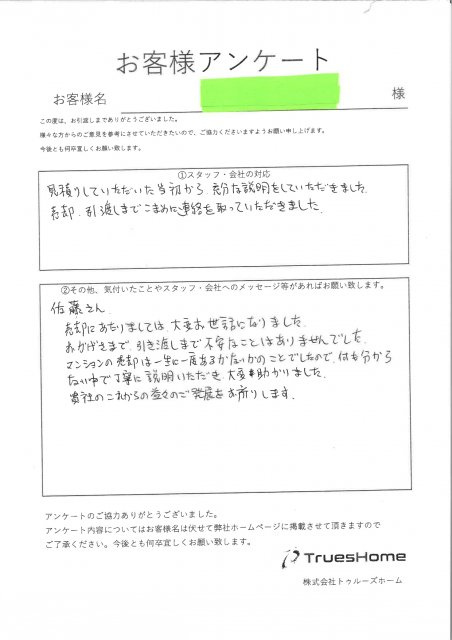 お客様アンケート
お客様名 様
この度は、お引渡しまでありがとうございました。
様々な方からのご意見を参考にさせていただきたいので、ご協力くださいますようお願い申し上げます。
今後とも何卒宜しくお願い致します。
①スタッフ・会社の対応
見積りしていただいた当初から、充分な説明をしていただきました。
売却、引渡しまでこまめに連絡を取っていただきました。
②その他、気付いたことやスタッフ・会社へのメッセージ等があればお願い致します。
佐藤さん
売却にあたりましては、大変お世話になりました。
おかげさまで、引き渡しまで不安なことはありませんでした。
マンションの売却は一生に一度あるかないかのことでしたので、何も分から
ない中で丁寧に説明いただき大変助かりました。
貴社のこれからの益々のご発展をお祈りします。
アンケートのご協力ありがとうございました。
アンケート内容についてはお客様名は伏せて弊社ホームページに掲載させて頂きますので
ご了承ください。今後とも何卒宜しくお願い致します。
TruesHome
株式会社トゥルーズホーム